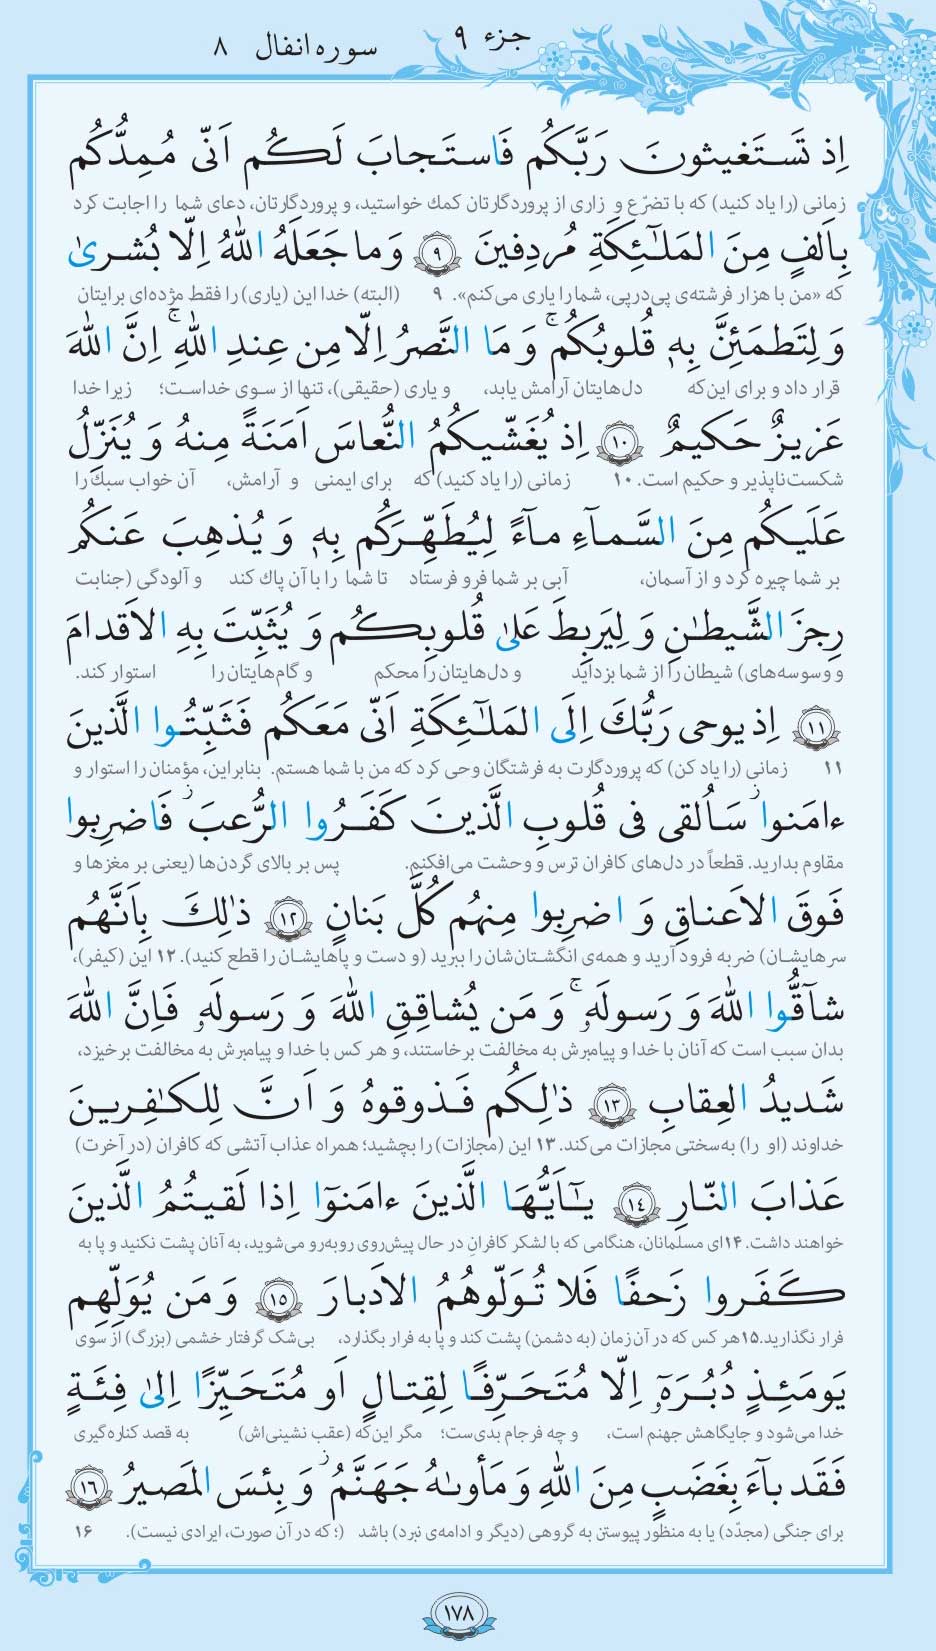 جزء ۹
سوره انفال ۸
اِذ تَستَغیثونَ رَبَّکُم فَاستَجابَ لَکُم اَنّی مُمِدُّکُم
زمانی (را یاد کنید) که با تضرّع و زاری از پروردگارتان کمك خواستید، و پروردگارتان، دعای شما را اجابت کرد
بِاَلفٍ مِنَ المَلٰٓئِکَةِ مُردِفینَ ﴿۹﴾ وَ ما جَعَلَهُ اللهُ اِلّا بُشریٰ
که «من با هزار فرشته‌ی پی‌درپی، شما را یاری می‌کنم». ۹ (البته) خدا این (یاری) را فقط مژده‌ای برایتان
وَ لِتَطمَئِنَّ بِهٖ قُلوبُکُم ۚ وَ مَا النَّصرُ اِلّا مِن عِندِ اللهِ ۚ اِنَّ اللهَ
قرار داد و برای این‌که دل‌هایتان آرامش یابد، و یاری (حقیقی)، تنها از سوی خداست؛ زیرا خدا
عَزیزٌ حَکیمٌ ﴿۱۰﴾ اِذ یُغَشّیکُمُ النُّعاسَ اَمَنَةً مِنهُ وَ یُنَزِّلُ
شکست‌ناپذیر و حکیم است. ۱۰ زمانی (را یاد کنید) که برای ایمنی و آرامش، آن خواب سبك را
عَلَیکُم مِنَ السَّمآءِ مآءً لِیُطَهِّرَکُم بِهٖ وَ یُذهِبَ عَنکُم
بر شما چیره کرد و از آسمان، آبی بر شما فرو فرستاد تا شما را با آن پاك کند و آلودگی (جنابت
رِجزَ الشَّیطٰنِ وَ لِیَربِطَ عَلیٰ قُلوبِکُم وَ یُثَبِّتَ بِهِ الاَقدامَ
و وسوسه‌های) شیطان را از شما بزداید و دل‌هایتان را محکم و گام‌هایتان را استوار کند.
﴿۱۱﴾ اِذ یوحی رَبُّكَ اِلَی المَلٰٓئِکَةِ اَنّی مَعَکُم فَثَبِّتُوا الَّذینَ
۱۱ زمانی (را یاد کن) که پروردگارت به فرشتگان وحی کرد که من با شما هستم. بنابراین، مؤمنان را استوار و
ءامَنوا ۚ سَاُلقی فی قُلوبِ الَّذینَ کَفَرُوا الرُّعبَ فَاضرِبوا
مقاوم بدارید. قطعاً در دل‌های کافران ترس و وحشت می‌افکنم. پس بر بالای گردن‌ها (یعنی بر مغزها و
فَوقَ الاَعناقِ وَ اضرِبوا مِنهُم کُلَّ بَنانٍ ﴿۱۲﴾ ذٰلِكَ بِاَنَّهُم
سرهایشان) ضربه فرود آرید و همه‌ی انگشتان‌شان را ببرید (و دست و پاهایشان را قطع کنید). ۱۲ این (کیفر)،
شآقُّوا اللهَ وَ رَسولَهٗ ۚ وَ مَن یُشاقِقِ اللهَ وَ رَسولَهٗ فَاِنَّ اللهَ
بدان سبب است که آنان با خدا و پیامبرش به مخالفت برخاستند، و هر کس با خدا و پیامبرش به مخالفت برخیزد،
شَدیدُ العِقابِ ﴿۱۳﴾ ذٰلِکُم فَذوقوهُ وَ اَنَّ لِلکٰفِرینَ
خداوند (او را) به‌سختی مجازات می‌کند. ۱۳ این (مجازات) را بچشید؛ همراه عذاب آتشی که کافران (در آخرت)
عَذابَ النّارِ ﴿۱۴﴾ یٰٓاَیُّهَا الَّذینَ ءامَنوٓا اِذا لَقیتُمُ الَّذینَ
خواهند داشت. ۱۴ ای مسلمانان، هنگامی که با لشکر کافرانِ در حال پیش‌روی روبه‌رو می‌شوید، به آنان پشت نکنید و پا به
کَفَروا زَحفًا فَلا تُوَلّوهُمُ الاَدبارَ ﴿۱۵﴾ وَ مَن یُوَلِّهِم
فرار نگذارید. ۱۵ هر کس که در آن زمان (به دشمن) پشت کند و پا به فرار بگذارد، بی‌شک گرفتار خشمی (بزرگ) از سوی
یَومَئِذٍ دُبُرَهٗٓ اِلّا مُتَحَرِّفًا لِقِتالٍ اَو مُتَحَیِّزًا اِلیٰ فِئَةٍ
خدا می‌شود و جایگاهش جهنم است، و چه فرجام بدی‌ست؛ مگر این‌که (عقب نشینی‌اش) به قصد کناره‌گیری
فَقَد بآءَ بِغَضَبٍ مِنَ اللهِ وَ مَأوىٰهُ جَهَنَّمُ ۚ وَ بِئسَ المَصیرُ ﴿۱۶﴾
برای جنگی (مجدّد) یا به منظور پیوستن به گروهی (دیگر و ادامه‌ی نبرد) باشد (؛ که در آن صورت، ایرادی نیست). ۱۶
۱۷۸